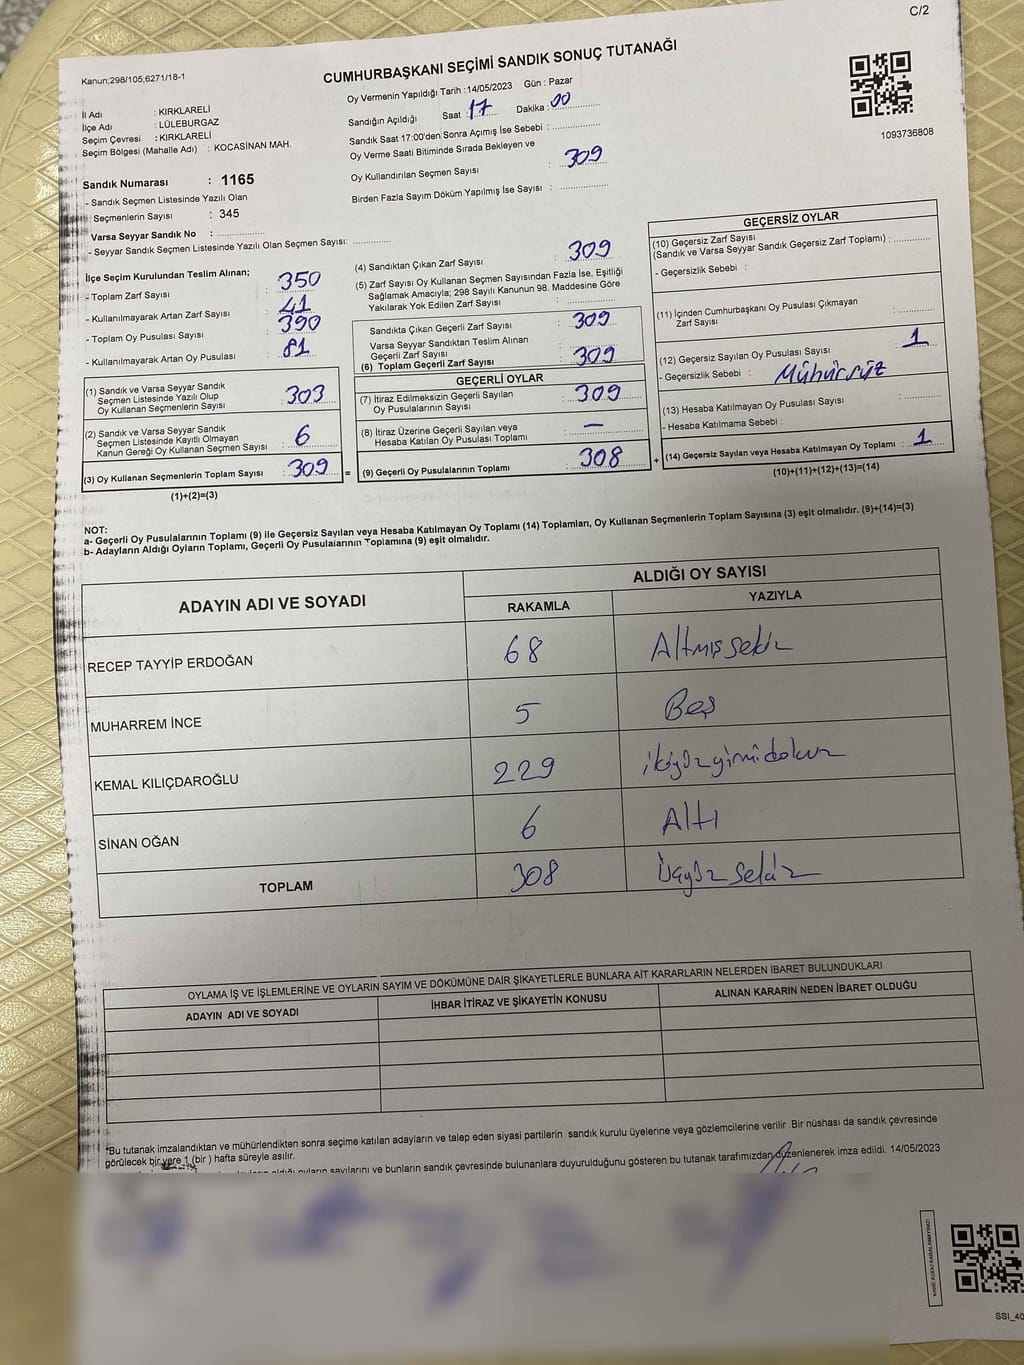 C/2
Kanun;298/105;6271/18-1
CUMHURBAŞKANI SEÇİMİ SANDIK SONUÇ TUTANAĞI
1093736808
İl Adı : KIRKLARELİ
İlçe Adı : LÜLEBURGAZ
Seçim Çevresi : KIRKLARELİ
Seçim Bölgesi (Mahalle Adı) : KOCASİNAN MAH.
Sandık Numarası : 1165
- Sandık Seçmen Listesinde Yazılı Olan
Seçmenlerin Sayısı : 345
Varsa Seyyar Sandık No :
- Seyyar Sandık Seçmen Listesinde Yazılı Olan Seçmen Sayısı:
Oy Vermenin Yapıldığı Tarih :14/05/2023 Gün : Pazar
Sandığın Açıldığı Saat : 17 Dakika : 00
Sandık Saat 17:00'den Sonra Açımış İse Sebebi :
Oy Verme Saati Bitiminde Sırada Bekleyen ve
Oy Kullandırılan Seçmen Sayısı : 309
Birden Fazla Sayım Döküm Yapılmış İse Sayısı :
İlçe Seçim Kurulundan Teslim Alınan;
- Toplam Zarf Sayısı : 350
- Kullanılmayarak Artan Zarf Sayısı : 41
- Toplam Oy Pusulası Sayısı : 390
- Kullanılmayarak Artan Oy Pusulası : 81
(1) Sandık ve Varsa Seyyar Sandık
Seçmen Listesinde Yazılı Olup
Oy Kullanan Seçmenlerin Sayısı : 303
(2) Sandık ve Varsa Seyyar Sandık
Seçmen Listesinde Kayıtlı Olmayan
Kanun Gereği Oy Kullanan Seçmen Sayısı : 6
(3) Oy Kullanan Seçmenlerin Toplam Sayısı : 309 =
(1)+(2)=(3)
(4) Sandıktan Çıkan Zarf Sayısı : 309
(5) Zarf Sayısı Oy Kullanan Seçmen Sayısından Fazla İse, Eşitliği
Sağlamak Amacıyla; 298 Sayılı Kanunun 98. Maddesine Göre
Yakılarak Yok Edilen Zarf Sayısı :
Sandıkta Çıkan Geçerli Zarf Sayısı : 309
Varsa Seyyar Sandıktan Teslim Alınan
Geçerli Zarf Sayısı :
(6) Toplam Geçerli Zarf Sayısı : 309
GEÇERLİ OYLAR
(7) İtiraz Edilmeksizin Geçerli Sayılan
Oy Pusulalarının Sayısı : 309
(8) İtiraz Üzerine Geçerli Sayılan veya
Hesaba Katılan Oy Pusulası Toplamı : —
(9) Geçerli Oy Pusulalarının Toplamı : 308 +
GEÇERSİZ OYLAR
(10) Geçersiz Zarf Sayısı
(Sandık ve Varsa Seyyar Sandık Geçersiz Zarf Toplamı) :
- Geçersizlik Sebebi :
(11) İçinden Cumhurbaşkanı Oy Pusulası Çıkmayan
Zarf Sayısı :
(12) Geçersiz Sayılan Oy Pusulası Sayısı : 1
- Geçersizlik Sebebi : Mühürsüz
(13) Hesaba Katılmayan Oy Pusulası Sayısı :
- Hesaba Katılmama Sebebi :
(14) Geçersiz Sayılan veya Hesaba Katılmayan Oy Toplamı : 1
(10)+(11)+(12)+(13)=(14)
NOT:
a- Geçerli Oy Pusulalarının Toplamı (9) ile Geçersiz Sayılan veya Hesaba Katılmayan Oy Toplamı (14) Toplamları, Oy Kullanan Seçmenlerin Toplam Sayısına (3) eşit olmalıdır. (9)+(14)=(3)
b- Adayların Aldığı Oyların Toplamı, Geçerli Oy Pusulalarının Toplamına (9) eşit olmalıdır.
ADAYIN ADI VE SOYADI
ALDIĞI OY SAYISI
RAKAMLA YAZIYLA
RECEP TAYYİP ERDOĞAN 68 Altmış sekiz
MUHARREM İNCE 5 Beş
KEMAL KILIÇDAROĞLU 229 ikiyüzyirmidokuz
SİNAN OĞAN 6 Altı
TOPLAM 308 Üçyüz sekiz
OYLAMA İŞ VE İŞLEMLERİNE VE OYLARIN SAYIM VE DÖKÜMÜNE DAİR ŞİKAYETLERLE BUNLARA AİT KARARLARIN NELERDEN İBARET BULUNDUKLARI
ADAYIN ADI VE SOYADI İHBAR İTİRAZ VE ŞİKAYETİN KONUSU ALINAN KARARIN NEDEN İBARET OLDUĞU
*Bu tutanak imzalandıktan ve mühürlendikten sonra seçime katılan adayların ve talep eden siyasi partilerin sandık kurulu üyelerine veya gözlemcilerine verilir .Bir nüshası da sandık çevresinde
görülecek bir yere 1 (bir ) hafta süreyle asılır.
aldığı oyların sayılarını ve bunların sandık çevresinde bulunanlara duyurulduğunu gösteren bu tutanak tarafımızdan düzenlenerek imza edildi. 14/05/2023
KARE KODU KARALAMAYINIZ!
SSI_40